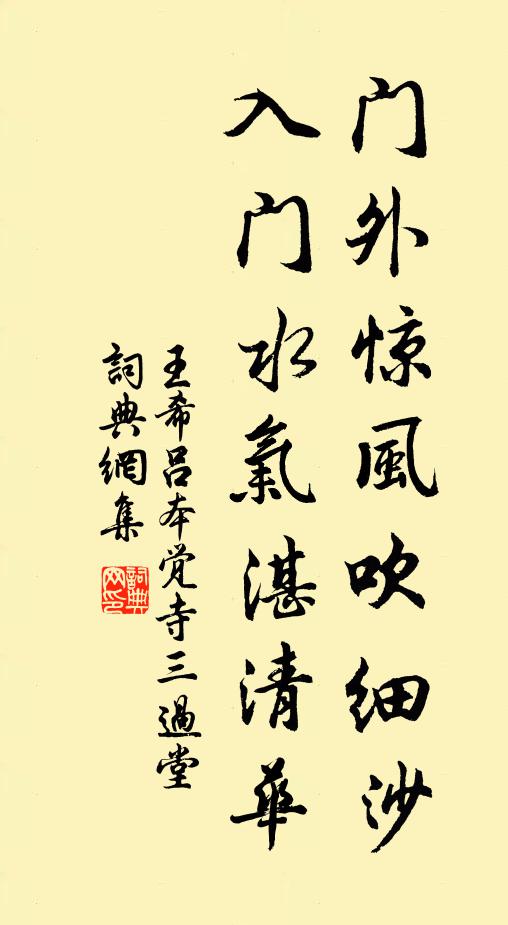 门外惊風吹细沙
入门水氣湛清華
王希呂本觉寺三過堂
詞典網集
詞典
网印